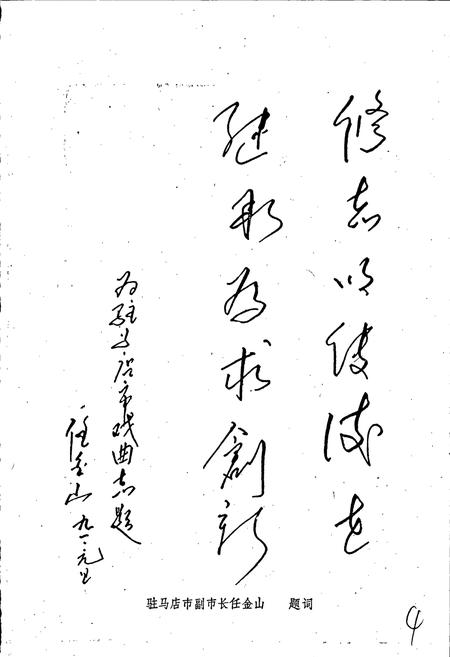 修志以
继为求創新
为驻马店市戏曲志题
任金山 九一·元旦
驻马店市副市长任金山 题词
4